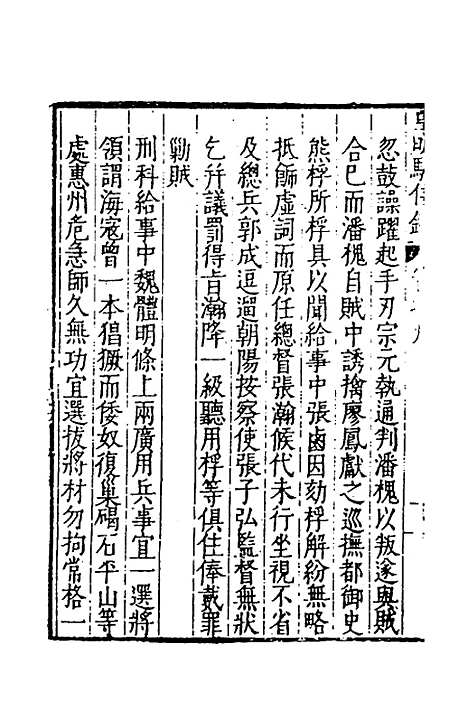 忽鼓譟躍起手刃宗元執通判潘槐以叛遂與賊
合巳而潘槐自賊中誘擒廖鳳獻之巡撫都御史
熊桴所桴具以聞給事中張鹵因劾桴解紛無略
抵飾虛詞而原任總督張瀚候代未行坐視不省
及總兵郭成逗遛朝陽按察使張子弘監督無狀
乞幷議罰得㫖瀚降一級聽用桴等俱住俸戴罪
勦賊
刑科給事中魏體明條上兩廣用兵事宜一選將
領謂海寇曾一本猖獗而倭奴復巢碣石平山等
處惠州危急師久無功宜選拔將材勿拘常格一